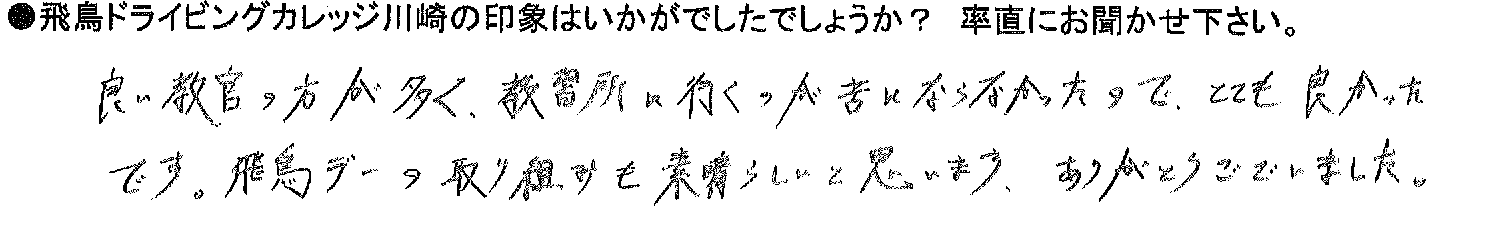 ●飛鳥ドライビングカレッジ川崎の印象はいかがでしたでしょうか？ 率直にお聞かせ下さい。
良い教官の方が多く、教習所に行くのが苦にならなかったので、とても良かった
です。飛鳥デーの取り組みも素晴らしいと思います、ありがとうございました。